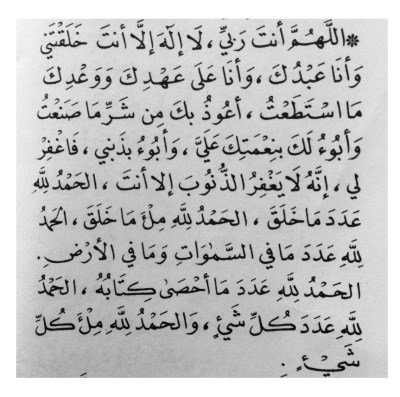 *اللَّهُمَّ أنتَ رَبِّي ، لَا إلَهَ إلَّا أنتَ خَلَقْتَنِي
وَأنَا عَبْدُكَ ، وَأنَا عَلَى عَهْدِكَ وَوَعْدِكَ
مَا اسْتَطَعْتُ ، أعُوذُ بِكَ مِن شَرِّ مَا صَنَعْتُ
وَأبُوءُ لَكَ بِنِعْمَتِكَ عَلَيَّ ، وَأبُوءُ بِذَنبِي ، فَاغْفِرْ
لِي ، إنَّهُ لَا يَغْفِرُ الذُّنُوبَ إلا أنتَ ، الحَمْدُ لِلَّهِ
عَدَدَ مَا خَلَقَ ، الحَمْدُ لِلَّهِ مِلْءَ مَا خَلَقَ ، الحَمْدُ
لِلَّهِ عَدَدَ مَا فِي السَّمٰوَاتِ وَمَا فِي الأرْضِ .
الحَمْدُ لِلَّهِ عَدَدَ مَا أحْصَى كِتَابُهُ ، الحَمْدُ
لِلَّهِ عَدَدَ كُلِّ شَيْءٍ ، وَالحَمْدُ لِلَّهِ مِلْءَ كُلِّ
شَيْءٍ .